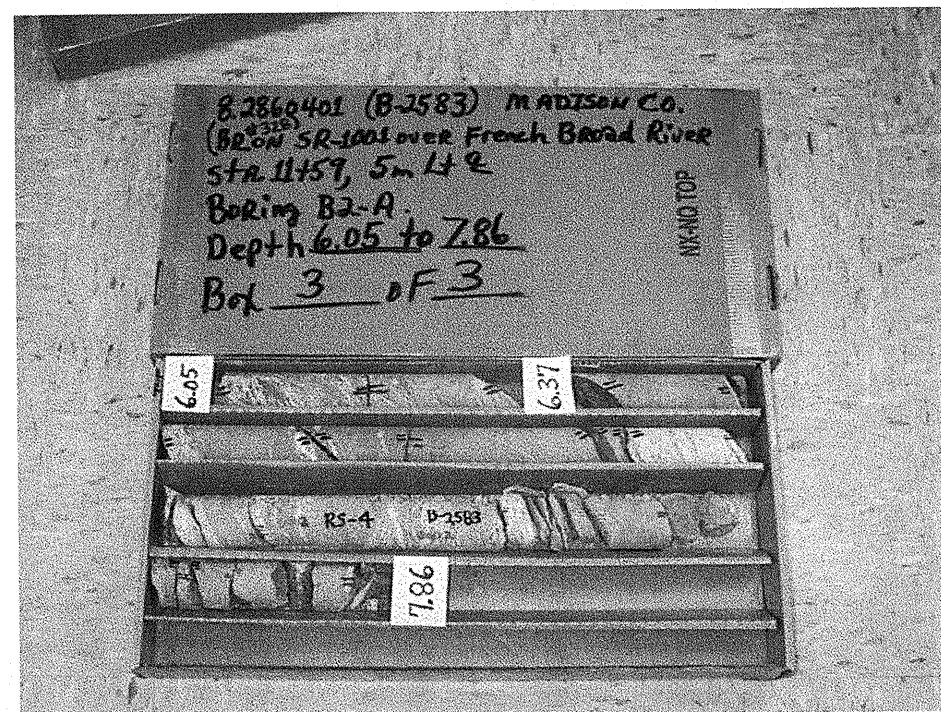 8.2860401 (B-2583) MADISON CO.
#318
(BR. ON SR-1001 over French Broad River
Sta 11+59, 5m Lt ⅊
Boring B2-A
Depth 6.05 to 7.86
Box 3 of 3
NX-NO TOP
6.05
6.37
RS-4 B-2583
7.86